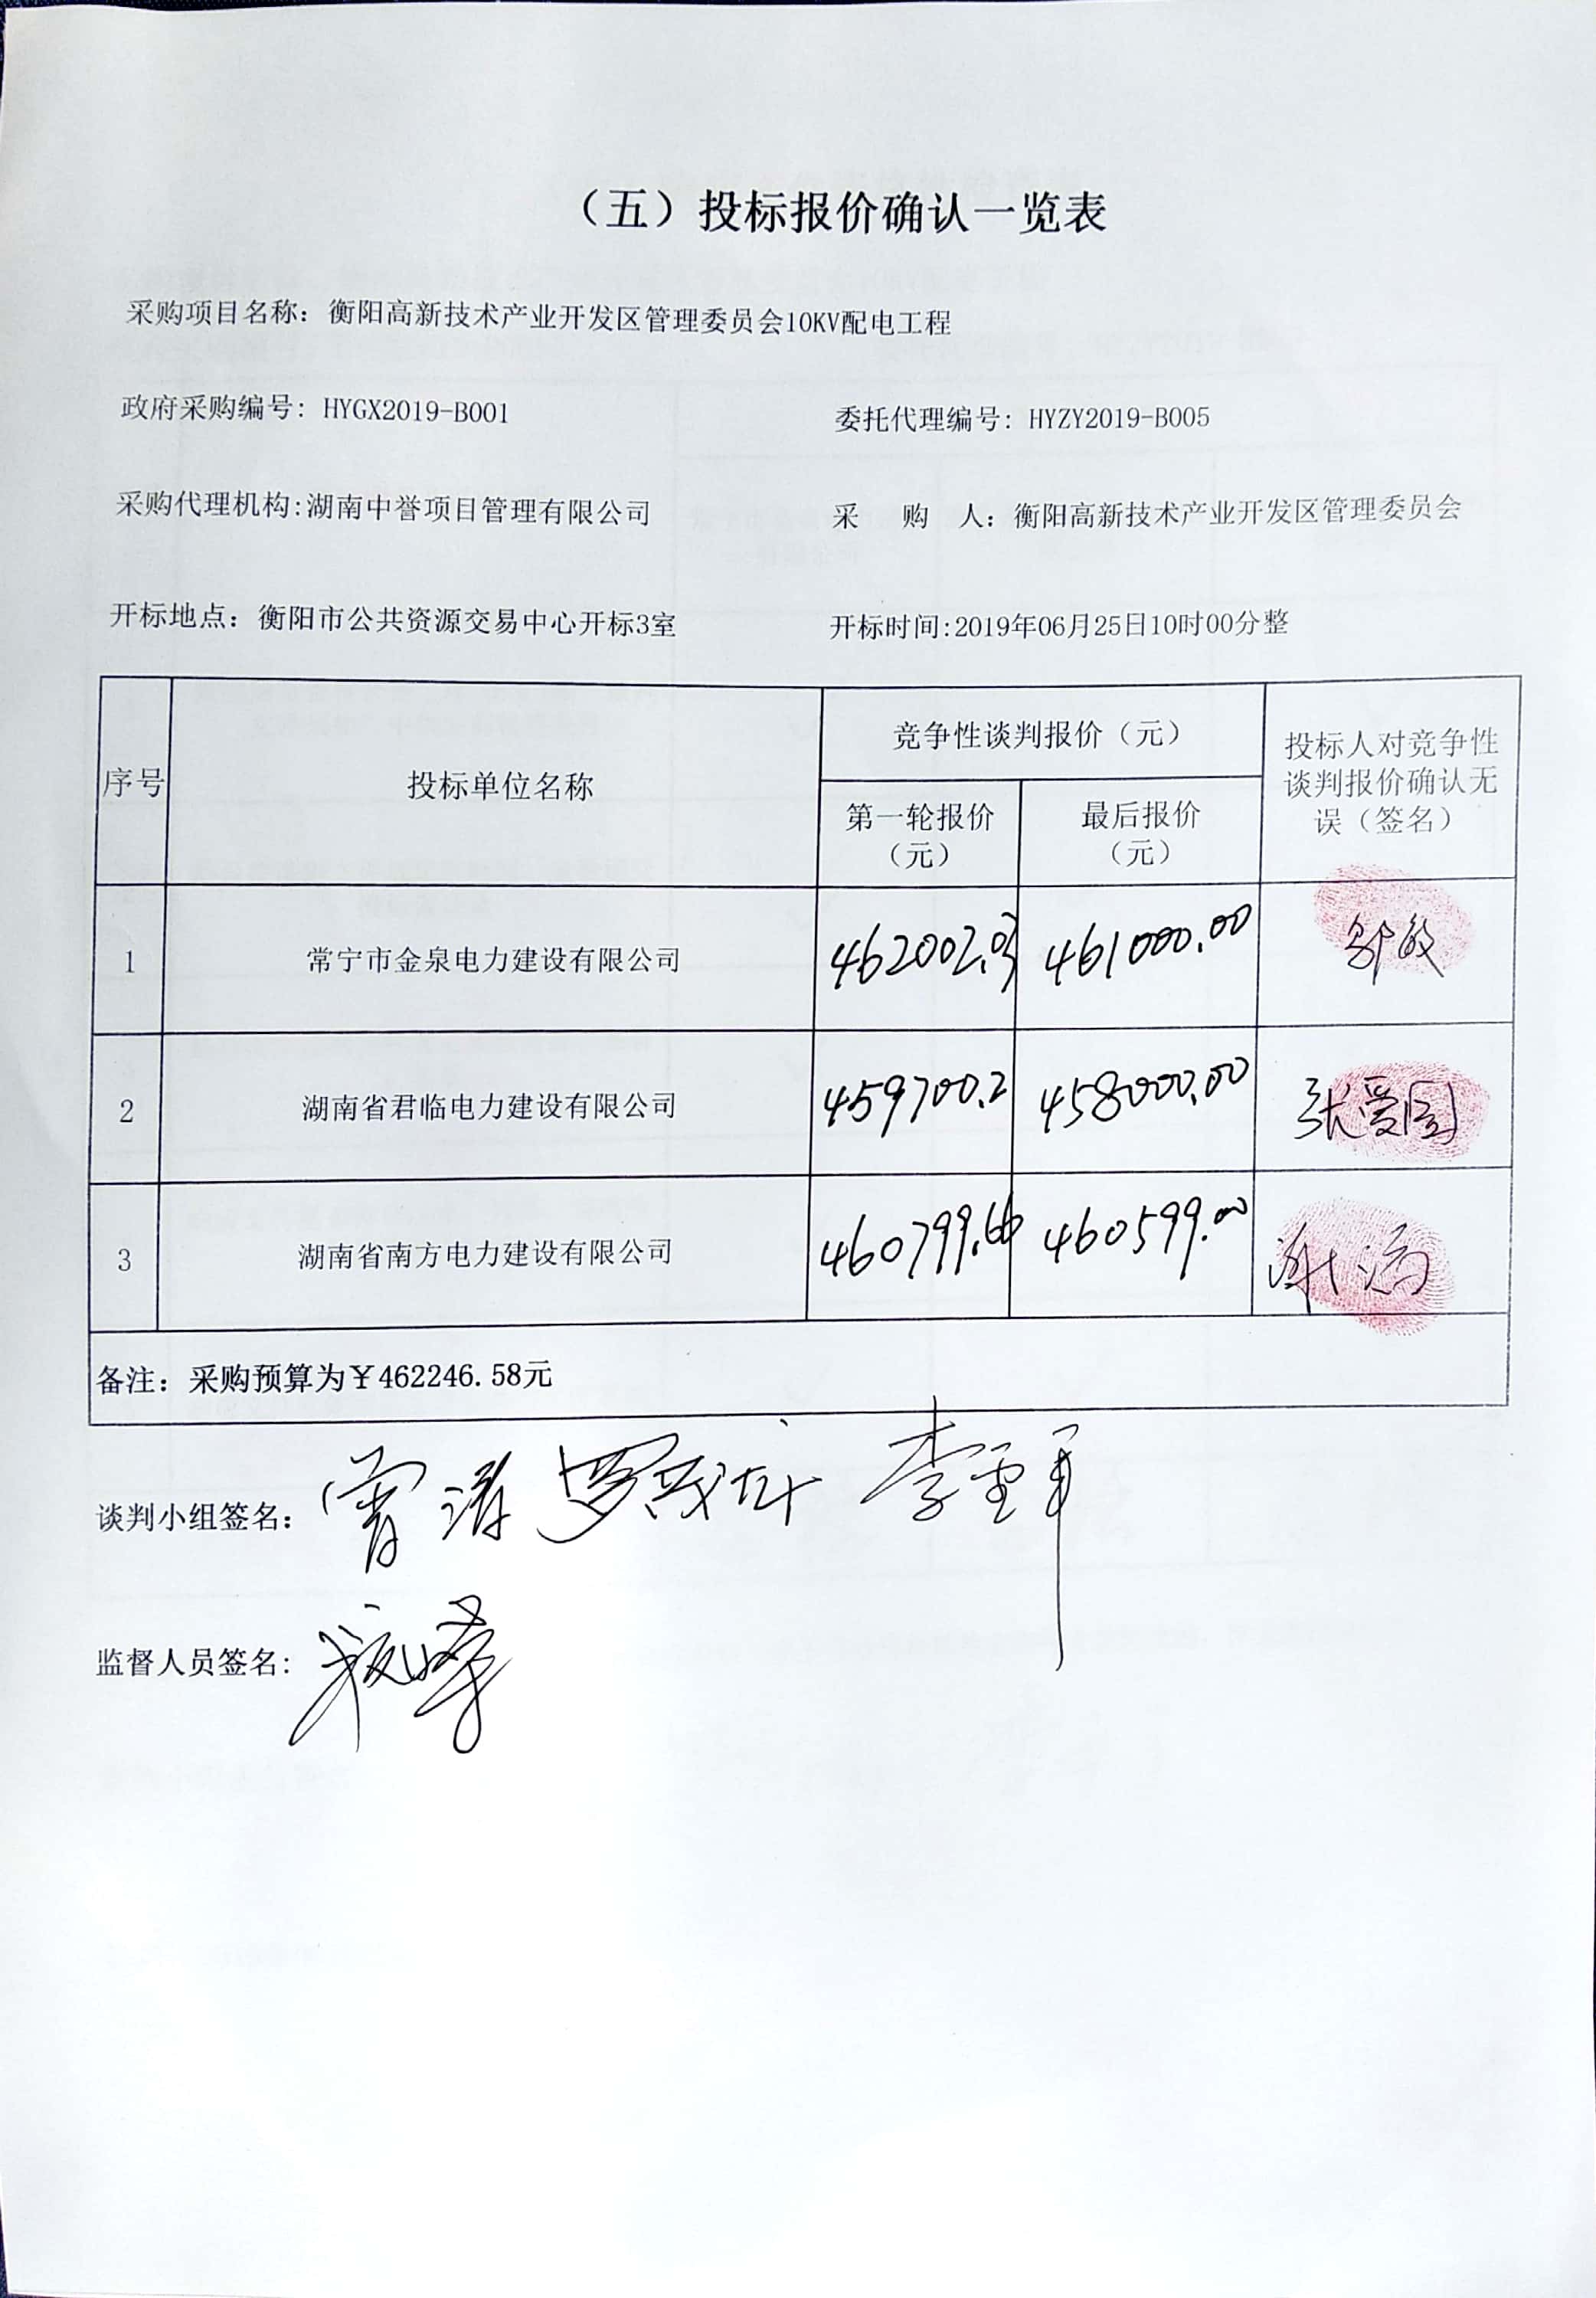 （五）投标报价确认一览表
采购项目名称：衡阳高新技术产业开发区管理委员会10KV配电工程
政府采购编号：HYGX2019-B001 委托代理编号：HYZY2019-B005
采购代理机构:湖南中誉项目管理有限公司 采 购 人：衡阳高新技术产业开发区管理委员会
开标地点：衡阳市公共资源交易中心开标3室 开标时间:2019年06月25日10时00分整
序号
投标单位名称
竞争性谈判报价（元）
第一轮报价
（元）
最后报价
（元）
投标人对竞争性
谈判报价确认无
误（签名）
1 常宁市金泉电力建设有限公司 461000.00
2 湖南省君临电力建设有限公司 459700.2 458000.00 张爱国
3 湖南省南方电力建设有限公司 460799.66 460599.00
备注：采购预算为￥462246.58元
谈判小组签名：
监督人员签名：